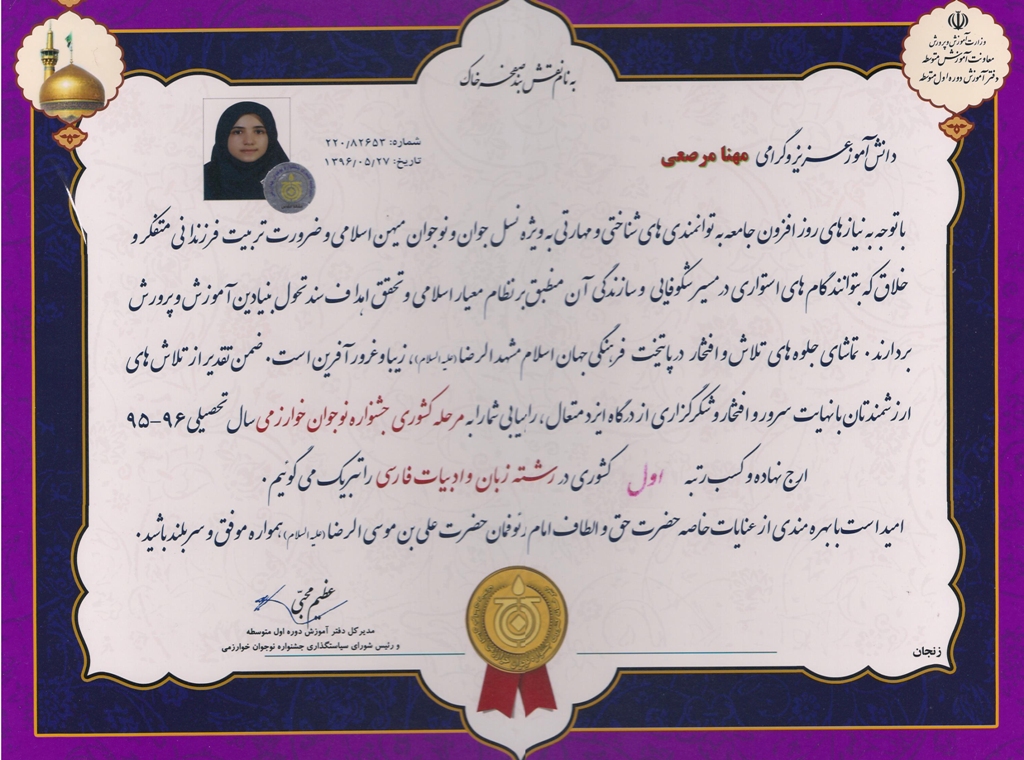 به نام نقش بند صفحه خاک
وزارت آموزش و پرورش
معاونت آموزش متوسطه
دفتر آموزش دوره اول متوسطه
شماره: ۲۲۰/۸۲۶۵۳
تاریخ: ۱۳۹۶/۰۵/۲۷
دانش آموز عزیز و گرامی مهنا مرصعی
با توجه به نیازهای روز افزون جامعه به توانمندی های شناختی و مهارتی به ویژه نسل جوان و نوجوان میهن اسلامی و ضرورت تربیت فرزندانی متفکر و
خلاق که بتوانند گام های استواری در مسیر شکوفایی و سازندگی آن منطبق بر نظام معیار اسلامی و تحقق اهداف سند تحول بنیادین آموزش و پرورش
بردارند. تماشای جلوه های تلاش و افتخار در پایتخت فرهنگی جهان اسلام مشهد الرضا (علیه السلام)، زیبا و غرور آفرین است. ضمن تقدیر از تلاش های
ارزشمندتان با نهایت سرور و افتخار و شکرگزاری از درگاه ایزد متعال، راهیابی شما را به مرحله کشوری جشنواره نوجوان خوارزمی سال تحصیلی ۹۶-۹۵
ارج نهاده و کسب رتبه اول کشوری در رشته زبان و ادبیات فارسی را تبریک می گوئیم.
امید است با بهره مندی از عنایات خاصه حضرت حق و الطاف امام رئوفمان حضرت علی بن موسی الرضا (علیه السلام) همواره موفق و سربلند باشید.
عظیم محبی
مدیر کل دفتر آموزش دوره اول متوسطه
و رئیس شورای سیاستگذاری جشنواره نوجوان خوارزمی
زنجان